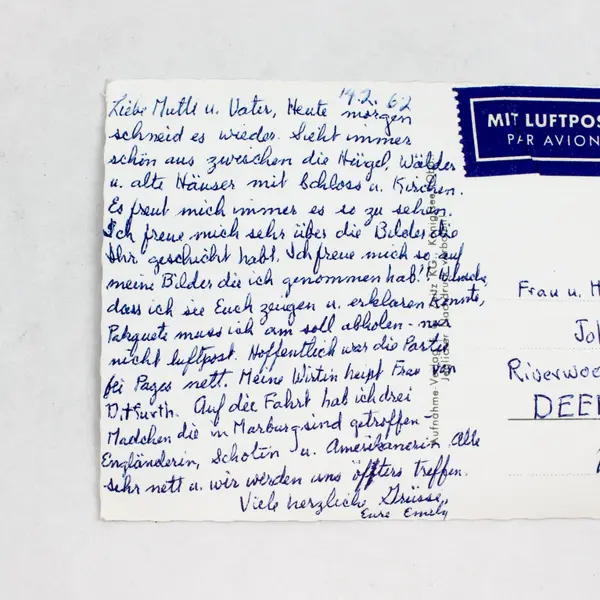 14.2.62
Liebe Mutti u. Vater, Heute morgen
schneid es wieder. Sieht immer
schön aus zwischen die Hügel, Wälder
u. alte Häuser mit Schloss u. Kirchen.
Es freut mich immer es so zu sehen.
Ich freue mich sehr über die Bilder die
Ihr geschickt habt. Ich freue mich so auf
meine Bilder die ich genommen hab!
dass ich sie Euch zeigen u. erklaren könnte,
Pakquete muss ich am soll abholen - nur
nicht luftpost. Hoffentlich war die Partie
bei Pages nett. Meine Wirtin heist Frau von
Ditfurth. Auf die Fahrt hab ich drei
Madchen die in Marburg sind getroffen
Engländerin, Schotin u. Amerikanerin. Alle
sehr nett u. wir werden uns öffters treffen.
Viele herzliche Grüsse,
Eure Emely
MIT LUFTPOS
PAR AVION
Aufnahme Verlag
KG. Königssee/Obb.
Jeglicher Nachdruck verboten
Frau u. H
Joh
Riverwoo
DEER